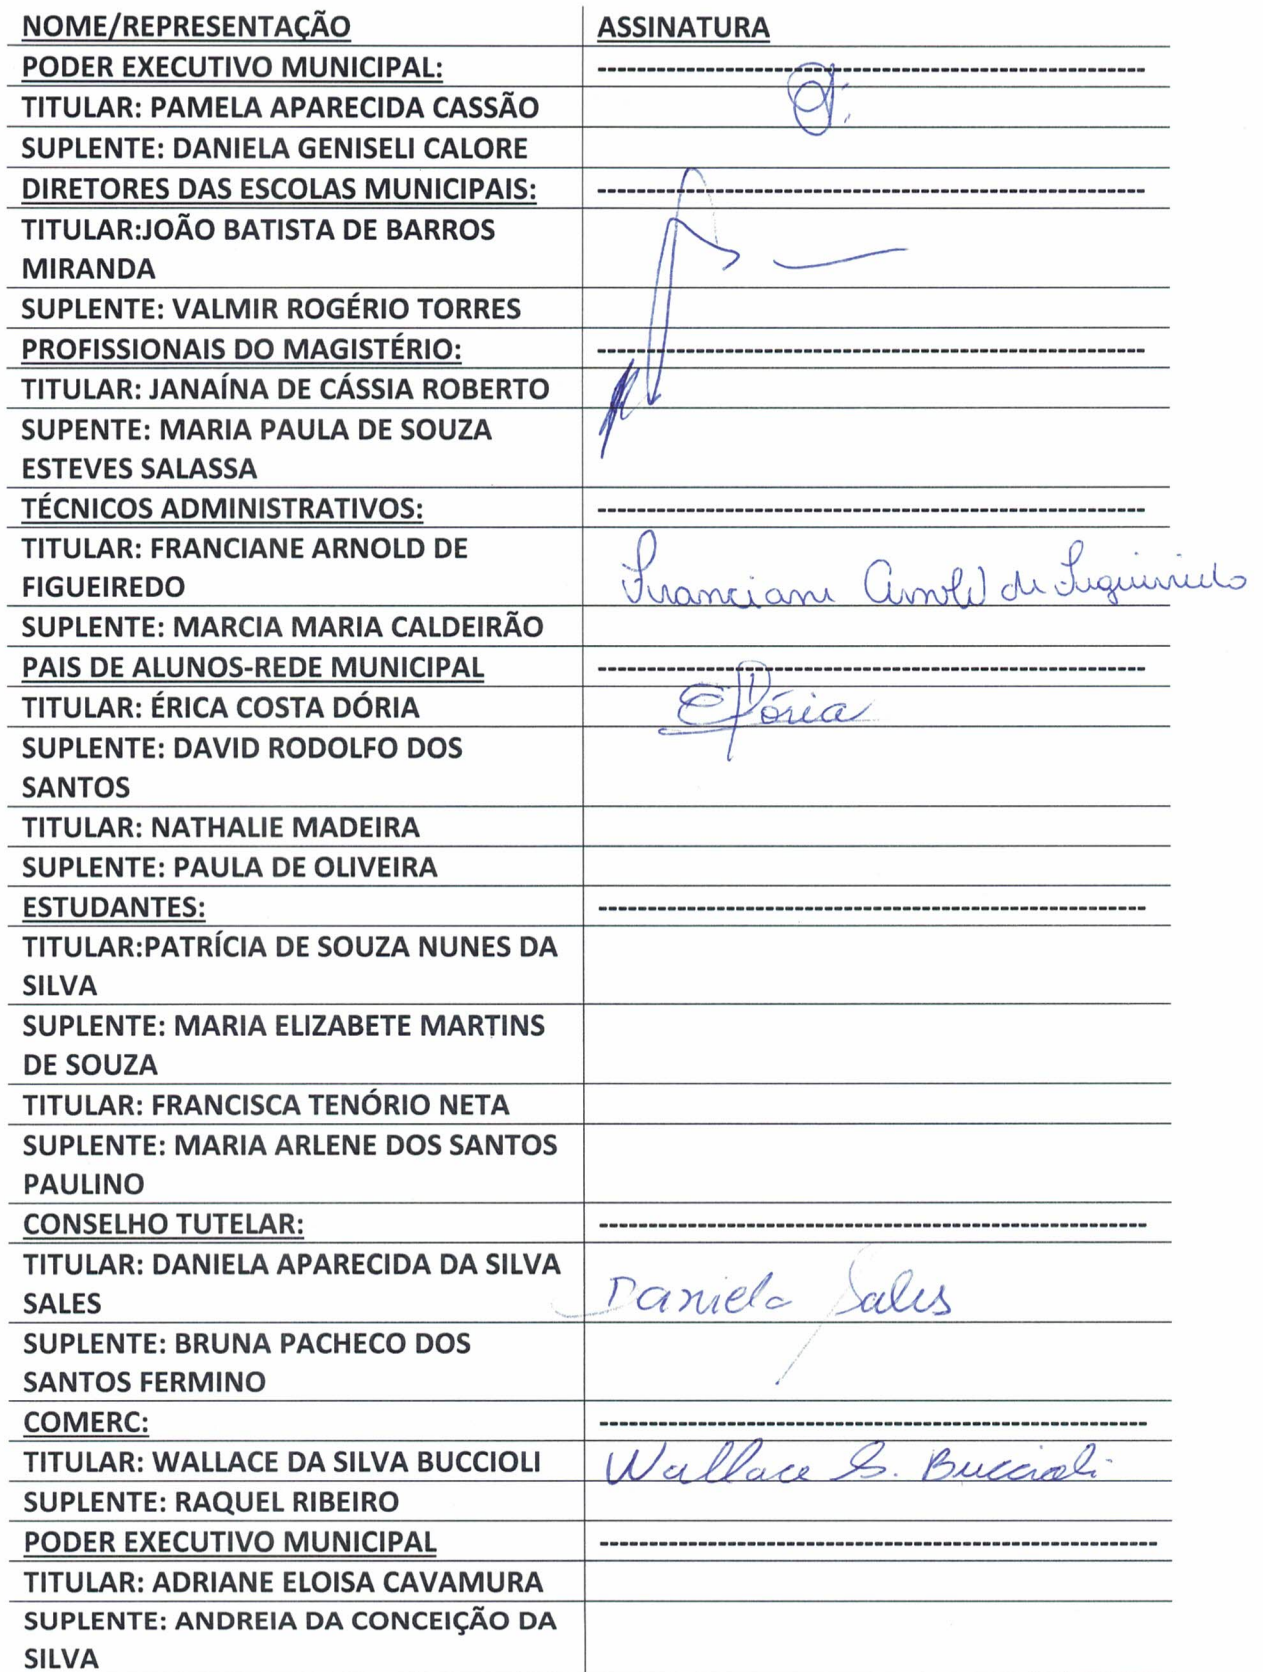 NOME/REPRESENTAÇÃO ASSINATURA
PODER EXECUTIVO MUNICIPAL: --------------------------------------------------------
TITULAR: PAMELA APARECIDA CASSÃO
SUPLENTE: DANIELA GENISELI CALORE
DIRETORES DAS ESCOLAS MUNICIPAIS: --------------------------------------------------------
TITULAR:JOÃO BATISTA DE BARROS
MIRANDA
SUPLENTE: VALMIR ROGÉRIO TORRES
PROFISSIONAIS DO MAGISTÉRIO: --------------------------------------------------------
TITULAR: JANAÍNA DE CÁSSIA ROBERTO
SUPENTE: MARIA PAULA DE SOUZA
ESTEVES SALASSA
TÉCNICOS ADMINISTRATIVOS: --------------------------------------------------------
TITULAR: FRANCIANE ARNOLD DE
FIGUEIREDO Franciane Arnold de Figueiredo
SUPLENTE: MARCIA MARIA CALDEIRÃO
PAIS DE ALUNOS-REDE MUNICIPAL --------------------------------------------------------
TITULAR: ÉRICA COSTA DÓRIA EDória
SUPLENTE: DAVID RODOLFO DOS
SANTOS
TITULAR: NATHALIE MADEIRA
SUPLENTE: PAULA DE OLIVEIRA
ESTUDANTES: --------------------------------------------------------
TITULAR:PATRÍCIA DE SOUZA NUNES DA
SILVA
SUPLENTE: MARIA ELIZABETE MARTINS
DE SOUZA
TITULAR: FRANCISCA TENÓRIO NETA
SUPLENTE: MARIA ARLENE DOS SANTOS
PAULINO
CONSELHO TUTELAR: --------------------------------------------------------
TITULAR: DANIELA APARECIDA DA SILVA
SALES Daniela Sales
SUPLENTE: BRUNA PACHECO DOS
SANTOS FERMINO
COMERC: --------------------------------------------------------
TITULAR: WALLACE DA SILVA BUCCIOLI Wallace S. Buccioli
SUPLENTE: RAQUEL RIBEIRO
PODER EXECUTIVO MUNICIPAL ---------------------------------------------------------
TITULAR: ADRIANE ELOISA CAVAMURA
SUPLENTE: ANDREIA DA CONCEIÇÃO DA
SILVA